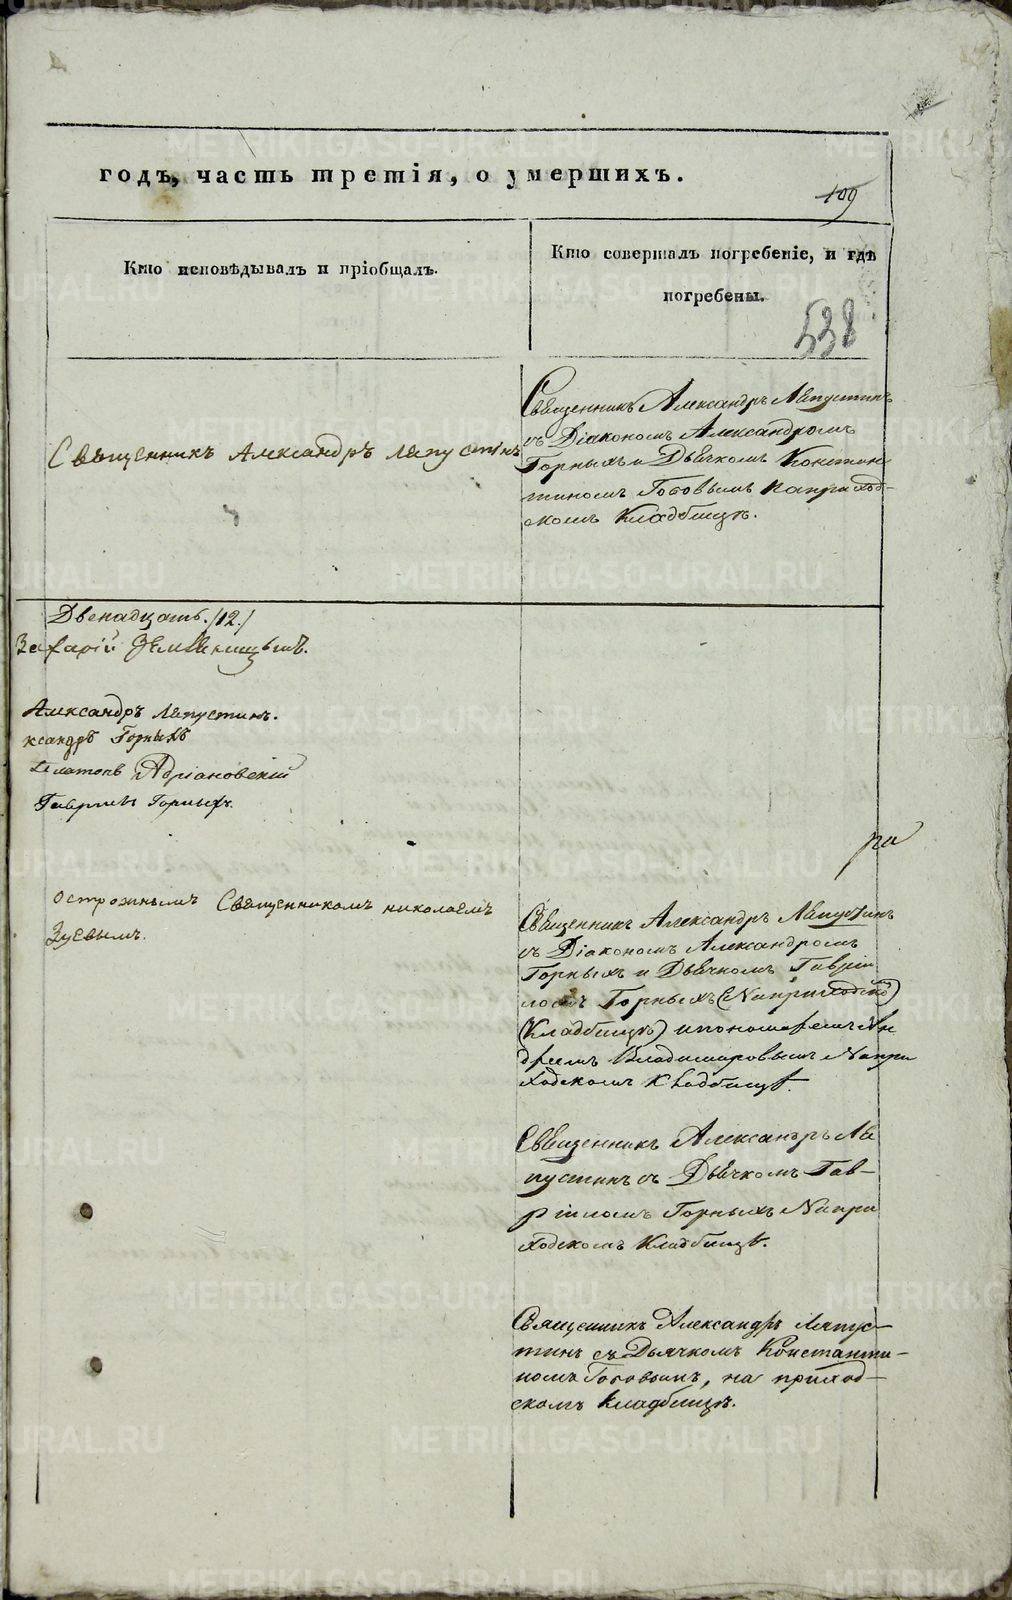 годъ, часть третія, о умершихъ.
109
Кто исповѣдывалъ и пріобщалъ.
Кто совершалъ погребеніе, и гдѣ
погребены.
538
Священникъ Александръ Ляпустинъ
Священникъ Александръ Ляпустинъ
съ Діакономъ Александромъ
Горныхъ и Дьячкомъ Констан
тиномъ Гоговымъ на приход-
скомъ Кладбищѣ.
Двенадцать. /12./
Захарій Земляницынъ.
Александръ Ляпустинъ.
ксандръ Горныхъ
Платонъ Адріановскій
Гавриилъ Горныхъ.
ра
Острожнымъ Священникомъ Николаемъ
Зуевымъ.
Священникъ Александръ Ляпустинъ
съ Діакономъ Александромъ
Горныхъ и Дьячкомъ Гаврiи
ломъ Горныхъ (На приходскомъ)
(Кладбищѣ) и пономаремъ Ан
дреемъ Владимировымъ На при
ходскомъ Кладбищѣ.
Священникъ Александръ Ля
пустинъ съ Дьячкомъ Гав-
ріиломъ Горныхъ На при
ходскомъ Кладбищѣ.
Священникъ Александръ Ляпус-
тинъ съ Дьячкомъ Константи-
номъ Гоговымъ, на приход-
скомъ кладбищѣ.
METRIKI.GASO-URAL.RU